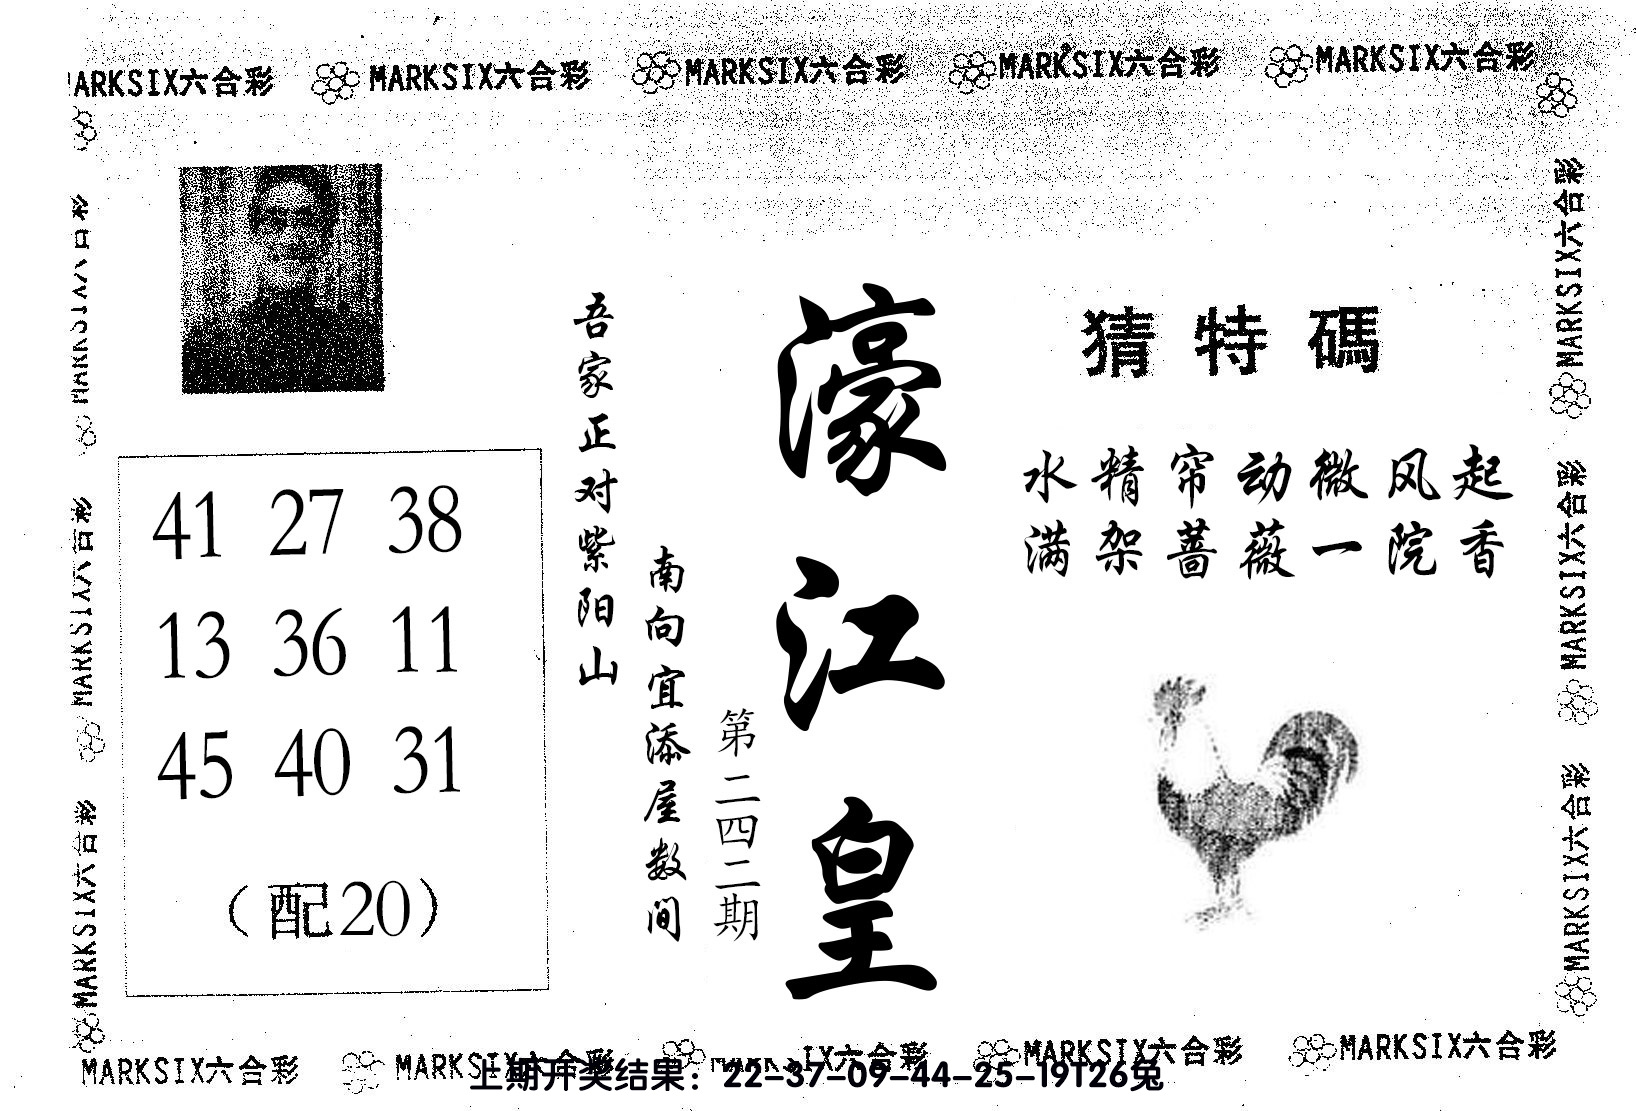 MARKSIX六合彩 MARKSIX六合彩 MARKSIX六合彩 MARKSIX六合彩 MARKSIX六合彩
猜特碼
水精帘动微风起
满架蔷薇一院香
濠江皇
第二四二期
吾家正对紫阳山
南向宜添屋数间
41 27 38
13 36 11
45 40 31
（配20）
MARKSIX六合彩
MARKSIX六合彩
MARKSIX六合彩
MARKSIX六合彩
MARKSIX六合彩
MARKSIX六合彩
MARKSIX六合彩 MARKSIX六合彩 MARKSIX六合彩 MARKSIX六合彩 MARKSIX六合彩
上期开奖结果：22-37-09-44-25-19T26兔